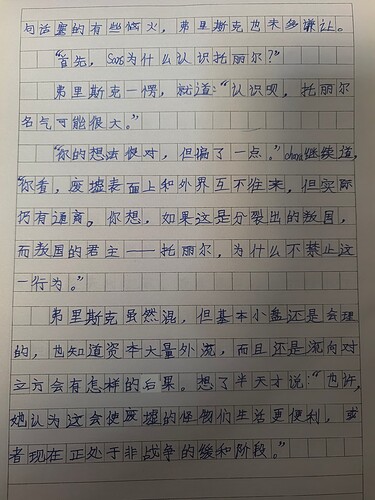 句话塞的有些恼火，弗里斯克也未多谦让。
“首先，Sans为什么认识托丽尔？”
弗里斯克一愣，就道：“认识呗，托丽尔
名气可能很大。”
“你的想法很对，但偏了一点。”chara继续道，
“你看，废墟表面上和外界互不往来，但实际
仍有通商。你想，如果这是分裂出的敌国，
而敌国的君主——托丽尔，为什么不禁止这
一行为。”
弗里斯克虽然混，但基本小盘还是会理
的，也知道资本大量外流，而且还是流向对
立方会有怎样的后果。想了半天才说：“也许，
她认为这会使废墟的怪物们生活更便利，或
者现在正处于非战争的缓和阶段。”